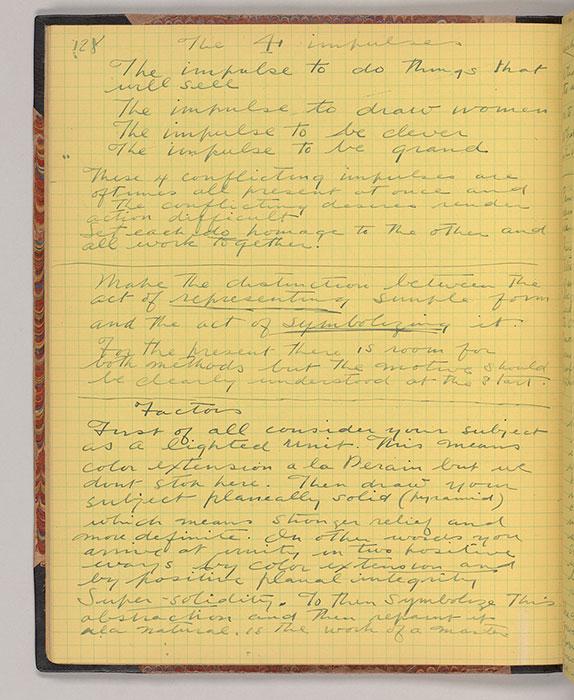 128
The 4 impulses
The impulse to do things that
will sell
The impulse to draw women
The impulse to be clever
The impulse to be grand
These 4 conflicting impulses are
oftimes all present at once and
the conflicting desires render
action difficult
Let each do homage to the other and
all work together.
Make the distinction between the
act of representing simple form
and the act of symbolizing it.
For the present there is room for
both methods but the motive should
be clearly understood at the start.
Factors
First of all consider your subject
as a lighted unit. This means
color extension a la Derain but we
dont stop here. Then draw your
subject planeally solid (pyramid)
which means stronger relief and
more definite. In other words you
arrive at unity in two positive
ways by color extension and
by positive planal integrity
Super-solidity. To then symbolize this
abstraction and then repaint it
ala natural. is the work of a master